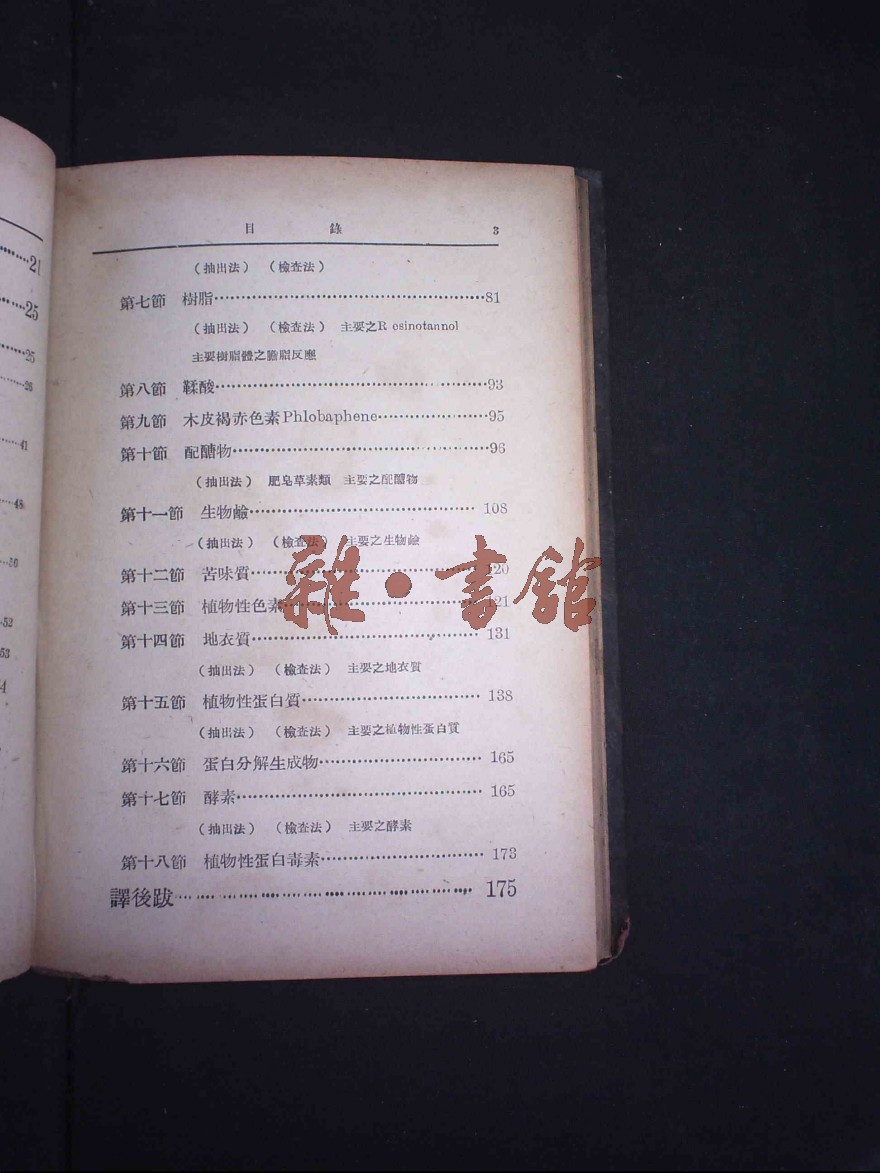 21
25
25
26
41
48
50
52
53
4
目　錄　3
（抽出法）（檢查法）
第七節　樹脂……81
（抽出法）（檢查法）　主要之R esinotannol
主要樹脂體之膽脂反應
第八節　鞣酸……93
第九節　木皮褐赤色素Phlobaphene……95
第十節　配醣物……96
（抽出法）　肥皂草素類　主要之配醣物
第十一節　生物鹼……108
（抽出法）（檢查法）　主要之生物鹼
第十二節　苦味質……120
第十三節　植物性色素……121
第十四節　地衣質……131
（抽出法）（檢查法）　主要之地衣質
第十五節　植物性蛋白質……138
（抽出法）（檢查法）　主要之植物性蛋白質
第十六節　蛋白分解生成物……165
第十七節　酵素……165
（抽出法）（檢查法）　主要之酵素
第十八節　植物性蛋白毒素……173
譯後跋……175
雜·書館